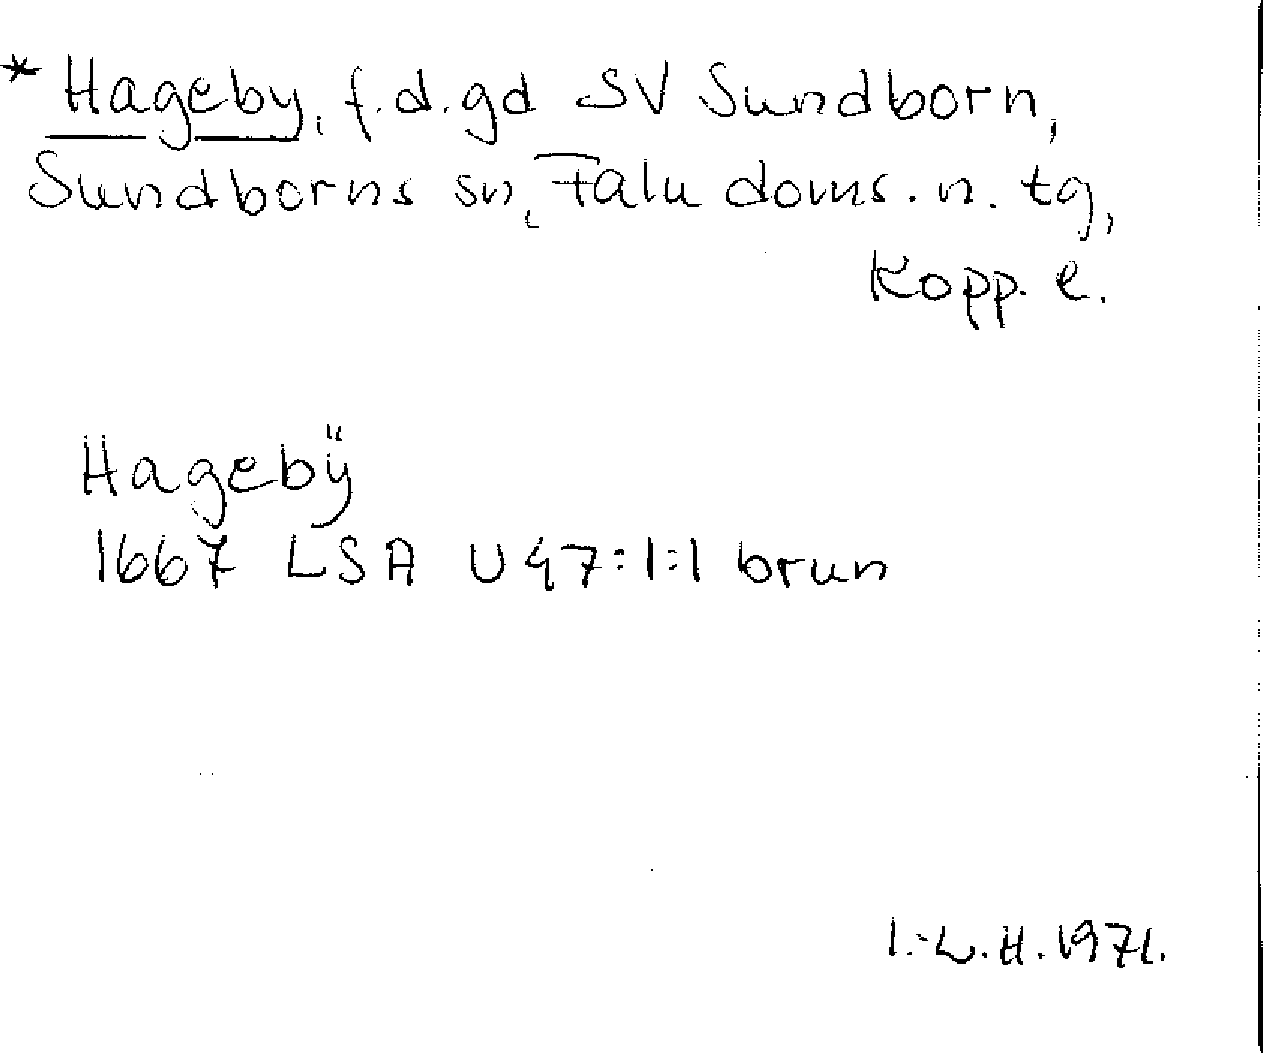 * Hageby, f.d.gd SV Sundborn,
Sundborns sn, Falu doms. n. tg,
Kopp. l.
Hagebÿ
1667 LSA U47:1:1 brun
I.-L.H.1971.